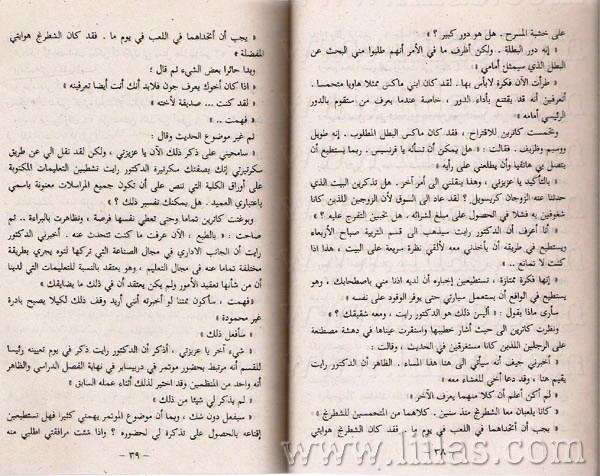 على خشبة المسرح . هل هو دور كبير ؟ »
« إنه دور البطلة . ولكن أظرف ما في الأمر أنهم طلبوا مني البحث عن
البطل الذي سيمثل أمامي »
« طرأت الآن فكرة لابأس بها.. لقد كان ابني ماكس ممثلا هاويا متحمسا .
أتعرفين أنه قد يقتنع بأداء الدور ، خاصة عندما يعرف من ستقوم بالدور
الرئيسي أمامه »
وتحمست كاترين للاقتراح ، فقد كان ماكس البطل المطلوب . إنه طويل
ووسيم وظريف . فقالت : « هل يمكن أن تسأله يا فرنسيس . ربما يستطيع أن
يتصل بي هاتفيا وأن يطلعني على رأيه »
« بالتأكيد يا عزيزتي ، وهذا ينقلني الى أمر آخر . هل تذكرين البيت الذي
حدثنا عنه الزوجان كريسويل ؟ لقد عاد الى السوق لأن الزوجين اللذين كانا
شغوفين به فشلا في الحصول على مبلغ لشرائه . هل تحبين التفرج عليه ؟ »
« أنا أعرف أن الدكتور رايت سيذهب الى قسم التربية صباح الأربعاء
ويستطيع في طريقه أن يأخذني معه لألقي نظرة سريعة على البيت ، هذا اذا
كنت لا تمانع .. »
« إنها فكرة ممتازة . تستطيعين إخباره أن لديه اذنا مني باصطحابك ، وهو
يستطيع في الواقع أن يستعمل سيارتي حتى يوفر الوقود على نفسه »
سارى ماذا يقول : « أليس ذلك هو الدكتور رايت ، ومعه شقيقك ؟ »
ونظرت كاترين الى حيث أشار خطيبها واستقرت عيناها في دهشة مصطنعة
على الرجلين اللذين كانا مستغرقين في الحديث ، وقالت :
« أخبرني جيف أنه سيأتي الى هنا هذا المساء . الظاهر أن الدكتور رايت
يقيم هنا ، وقد دعا أخي للعشاء معه »
« لم أكن أعلم أن كلا منهما يعرف الآخر »
« كانا يلعبان معا الشطرنج منذ سنين . كلاهما من المتحمسين للشطرنج »
« يجب أن أتحداهما في اللعب في يوم ما . فقد كان الشطرنج هوايتي
٣٨
« يجب أن أتحداهما في اللعب في يوم ما . فقد كان الشطرنج هوايتي
المفضلة »
وبدا حائرا بعض الشيء ثم قال :
« اذا كان أخوك يعرف جون فلابد أنك أنت أيضا تعرفينه »
« لقد كنت ... صديقة لأخته »
« فهمت .. »
ثم غير موضوع الحديث وقال :
« سامحيني على ذكر ذلك الآن يا عزيزتي ، ولكن لقد نقل الي عن طريق
سكرتيرتي إنك بصفتك سكرتيرة الدكتور رايت تشطبين التعليمات المكتوبة
على أوراق الكلية التي تنص على أن تكون جميع المراسلات معنونة باسمي
باعتباري العميد. هل يمكنك تفسير ذلك ؟ »
وبوغتت كاترين تماما وحتى تعطي نفسها فرصة ، وتظاهرت بالبراءة .. ثم
صاحت : « بالطبع ، الآن عرفت ما كنت تتحدث عنه . أخبرني الدكتور
رايت أن الجانب الاداري في مجال الصناعة التي تركها لتوه يجري بطريقة
مختلفة تماما عنه في مجال التعليم ، وهو يعتقد بالنسبة للتعليمات التي لدينا
أن من شأنها تعقيد الأمور ولم يكن يعتقد أن في ذلك ما يضايقك »
« فهمت ، سأكون ممتنا لو أخبرته أنني أريد وقف ذلك لكيلا يصبح بادرة
غير محمودة »
« سأفعل ذلك »
« شيء آخر يا عزيزتي ، أذكر أن الدكتور رايت ذكر في يوم تعيينه رئيسا
للقسم أنه مرتبط بحضور مؤتمر في دربيسابر في نهاية الفصل الدراسي والظاهر
أنه واحد من المنظمين وقد اختير لذلك أثناء عمله السابق »
« لم يذكر لي شيئا من ذلك »
« سيفعل دون شك ، وبما أن موضوع المؤتمر يهمني كثيرا فهل تستطيعين
إقناعه بالحصول على تذكرة لي لحضوره ؟ واذا شئت مرافقتي اطلبي منه
- ٣٩ -
www.liilas.com